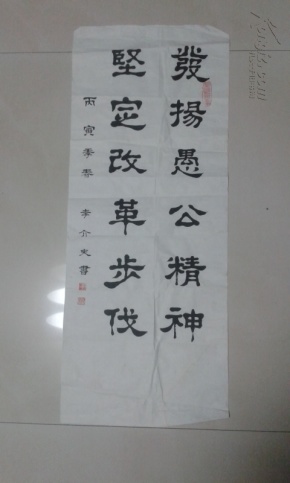 發揚愚公精神
堅定改革步伐
丙寅季春 李介夫書